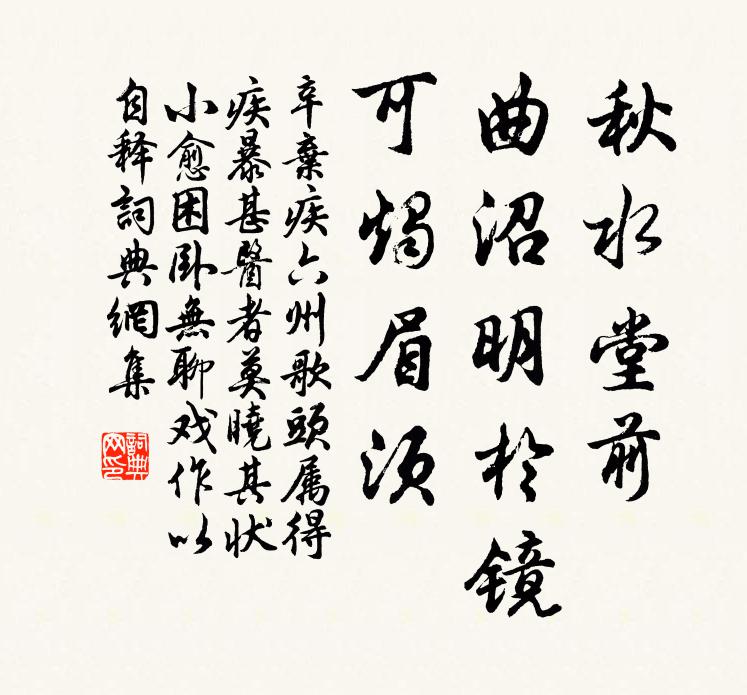 秋水堂前
曲沼明於镜
可燭眉须
辛棄疾六州歌頭属得
疾暴甚醫者莫曉其状
小愈困卧無聊戏作以
自释詞典網集
詞典
网印